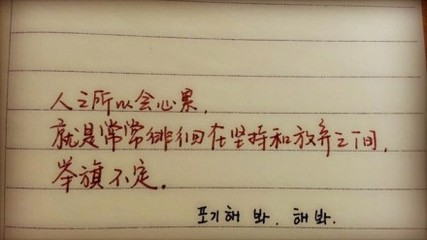 人之所以会心累,
就是常常徘徊在坚持和放弃之间,
举旗不定。
포기해 봐. 해봐.